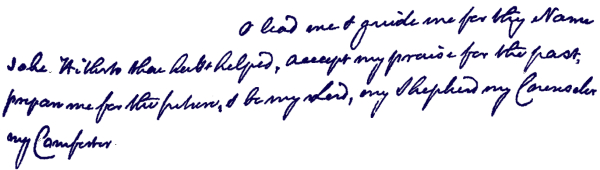 O lead me & guide me for thy Name
sake. Hitherto thou hast helped, accept my praise for the past,
prepare me for the future, & be my Lord, my Shepherd my Counselor
my Comforter.